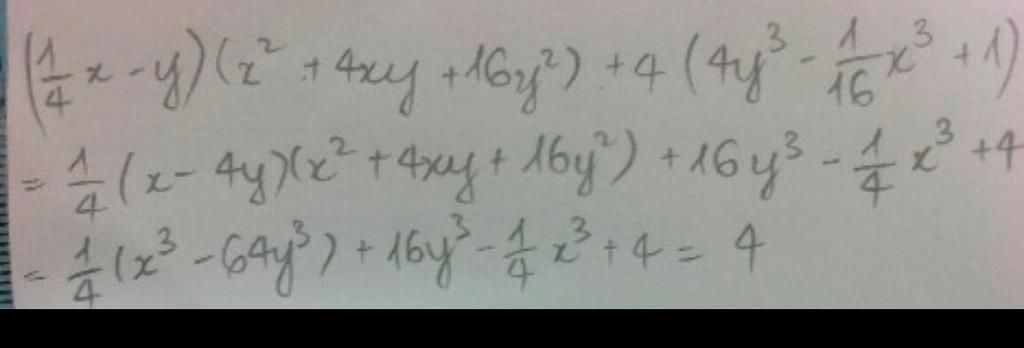 (1/4 x - y)(x² + 4xy + 16y²) + 4(4y³ - 1/16 x³ + 1)
= 1/4 (x - 4y)(x² + 4xy + 16y²) + 16y³ - 1/4 x³ + 4
= 1/4 (x³ - 64y³) + 16y³ - 1/4 x³ + 4 = 4